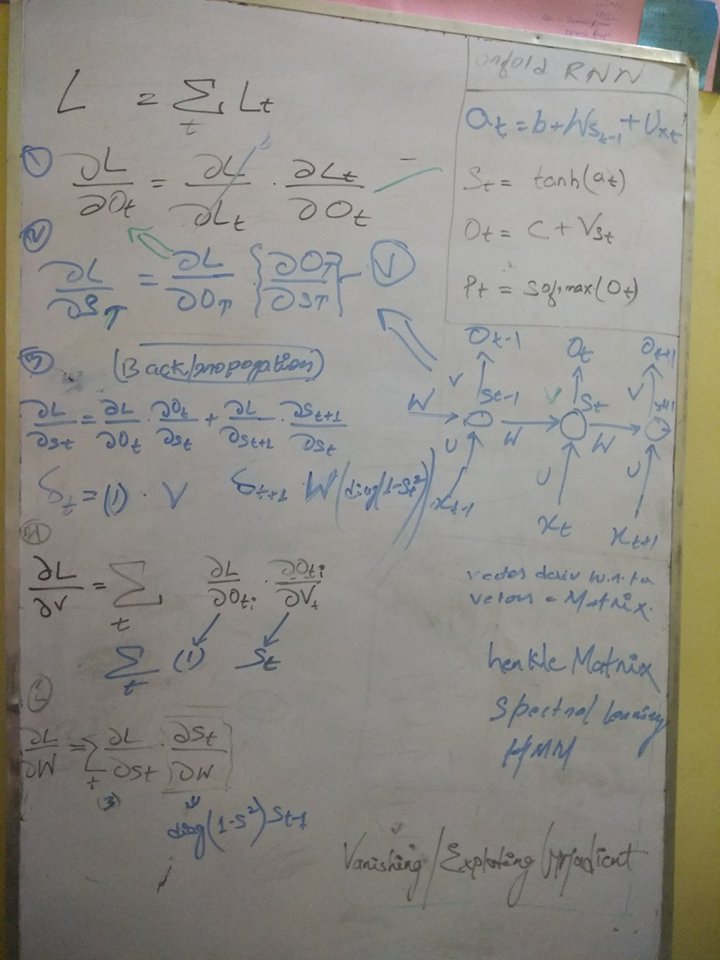 L = Σ_t L_t
① ∂L/∂O_t = ∂L/∂L_t · ∂L_t/∂O_t
② ∂L/∂S_T = ∂L/∂O_T · {∂O_T/∂S_T} – V
③ (Backpropogation)
∂L/∂S_t = ∂L/∂O_t · ∂O_t/∂S_t + ∂L/∂S_t+1 · ∂S_t+1/∂S_t
δ_t = (1) · V δ_t+1 W (diag(1-S_t²))
④
∂L/∂V = Σ_t ∂L/∂O_ti · ∂O_ti/∂V_t
Σ_t (1) S_t
∂L/∂W = Σ_t ∂L/∂S_t · ∂S_t/∂W
(3)
diag(1-S²) S_t-1
Unfold RNN
a_t = b + W S_t-1 + U x_t
S_t = tanh(a_t)
O_t = C + V S_t
P_t = Sofmax(O_t)
O_t-1 O_t O_t+1
V V V
W S_t-1 W S_t W S_t+1
U U U
x_t-1 x_t x_t+1
vector deriv w.r.to
vectors = Matrix.
henkle Matrix
Spectral learning
HMM
Vanishing/Exploting Gradient